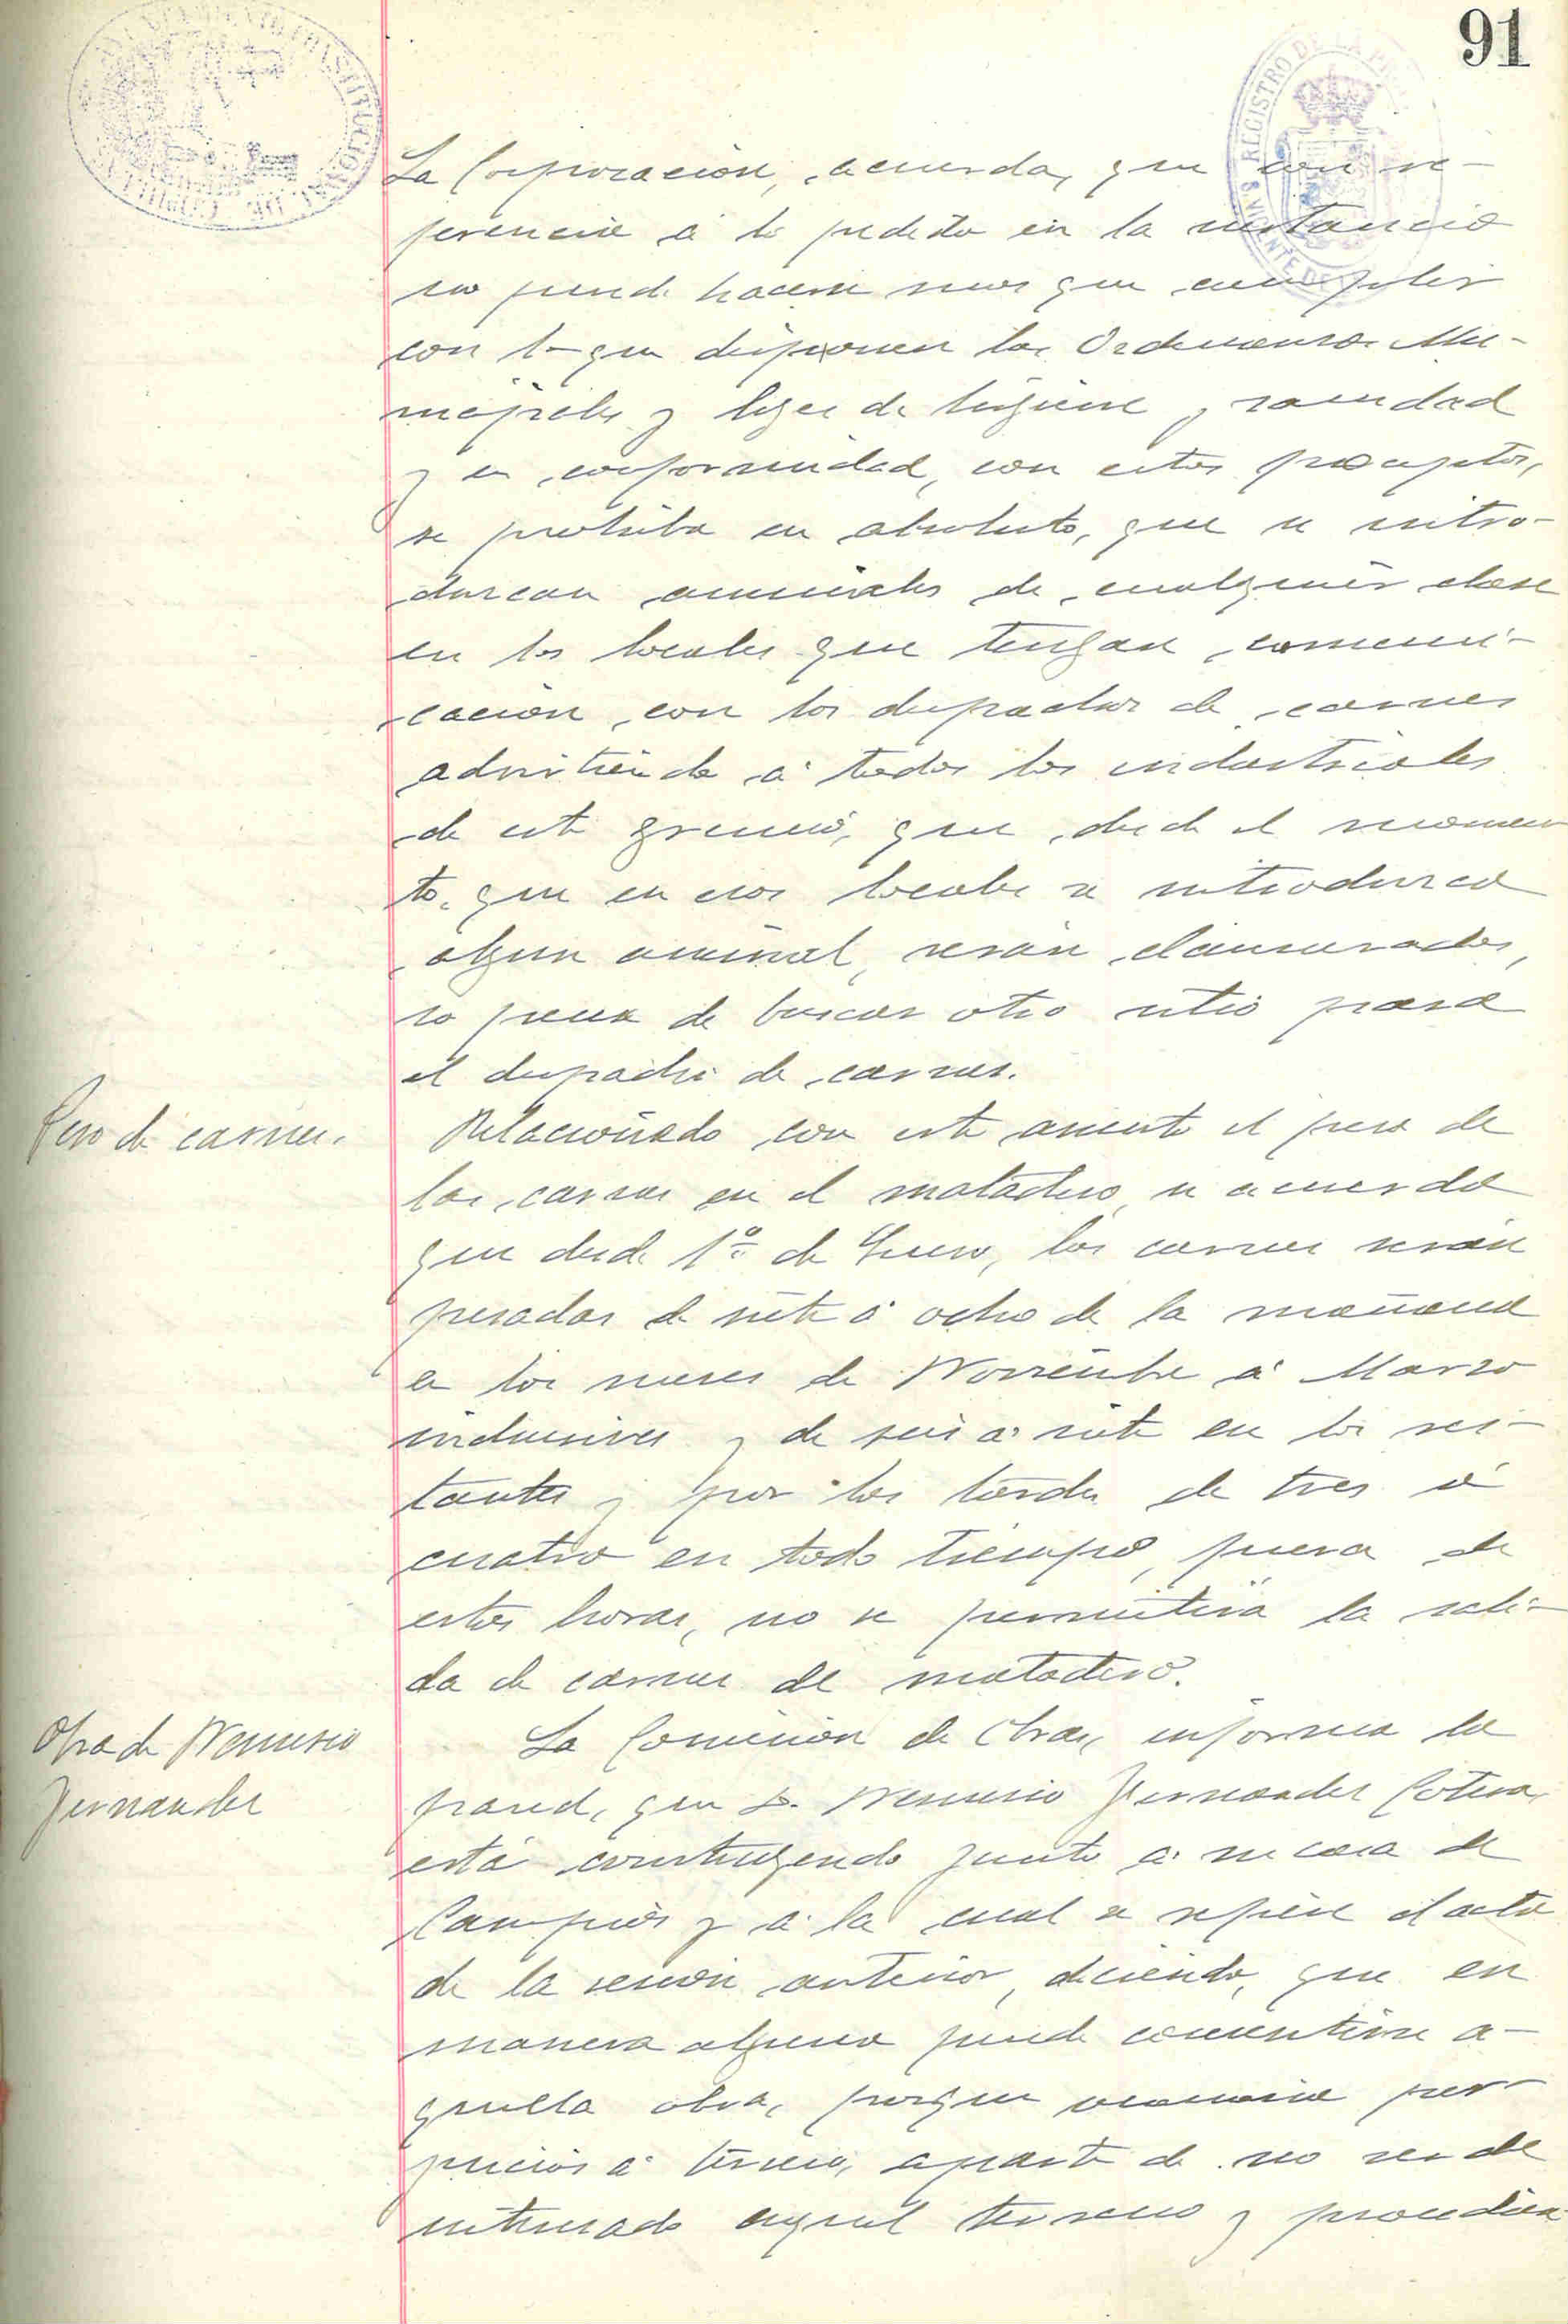 91
REGISTRO DE LA
SAN VICENTE DE
La Corporación, acuerda, que con re-
ferencia á lo pedido en la instancia
no puede hacerse mas que cumplir
con lo que disponen las Ordenanzas Mu-
nicipales y leyes de higiene y sanidad
y en conformidad, con estos preceptos,
se prohiba en absoluto, que se intro-
duzcan animales de cualquier clase
en los locales que tengan comuni-
cación con los despachos de carnes
advirtiendo á todos los industriales
de este gremio, que desde el momen
to que en esos locales se introduzca
algun animal, serán clausurados,
so pena de buscar otro sitio para
el despacho de carnes.
Peso de carnes.
Relacionado con este asunto el peso de
las carnes en el matadero, se acuerda
que desde 1º de Enero, las carnes serán
pesadas de siete á ocho de la mañana
en los meses de Noviembre á Marzo
inclusives y de seis á siete en los res-
tantes y por las tardes de tres á
cuatro en todo tiempo, fuera de
estas horas, no se permitirá la sali-
da de carnes del matadero.
Obra de Nemesio
Fernandez
La Comisión de Obras, informa la
pared, que D. Nemesio Fernandez Cotera,
está construyendo junto á su casa de
Campios y á la cual se refiere el acta
de la sesión anterior, diciendo, que en
manera alguna puede consentirse a-
quella obra, porque ocasiona per-
juicios á tercero, aparte de no ser del
interesado aquel terreno y